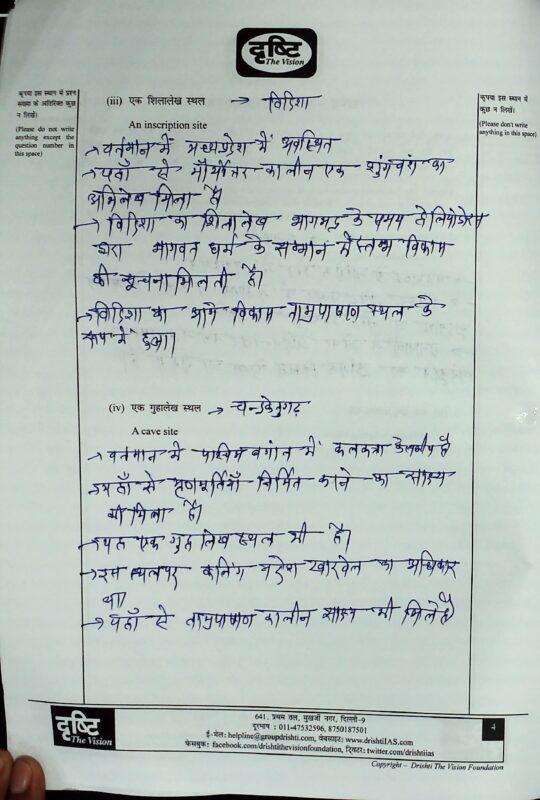 दृष्टि
The Vision
कृपया इस स्थान में प्रश्न
संख्या के अतिरिक्त कुछ
न लिखें।
(Please do not write
anything except the
question number in
this space)
कृपया इस स्थान में कुछ
न लिखें।
(Please don't write
anything in this space)
(iii) एक शिलालेख स्थल → विदिशा
An inscription site
→ वर्तमान में मध्यप्रदेश में अवस्थित
→ यहाँ से मौर्योत्तर कालीन एक शुंगवंश का
अभिलेख मिला है।
→ विदिशा का शिलालेख भागभद्र के समय हेलियोडोरस
द्वारा भागवत धर्म के सम्मान में स्तम्भ विकास
की सूचना मिलती है।
→ विदिशा का आगे विकास ताम्रपाषाण स्थल के
रूप में हुआ।
(iv) एक गुहालेख स्थल → चन्द्रकेतुगढ़
A cave site
→ वर्तमान में पश्चिम बंगाल में कलकत्ता के समीप है
→ यहाँ से मृणमूर्तियाँ निर्मित करने का साक्ष्य
भी मिला है।
→ यह एक गुहा लेख स्थल भी है।
→ इस स्थल पर कलिंग नरेश खारवेल का अधिकार
था।
→ यहाँ से ताम्रपाषाण कालीन साक्ष्य भी मिले है
दृष्टि
The Vision
641, प्रथम तल, मुखर्जी नगर, दिल्ली-9
दूरभाष : 011-47532596, 8750187501
ई-मेल: helpline@groupdrishti.com, वेबसाइट: www.drishtiIAS.com
फेसबुक: facebook.com/drishtithevisionfoundation, ट्विटर: twitter.com/drishtiias
4
Copyright – Drishti The Vision Foundation